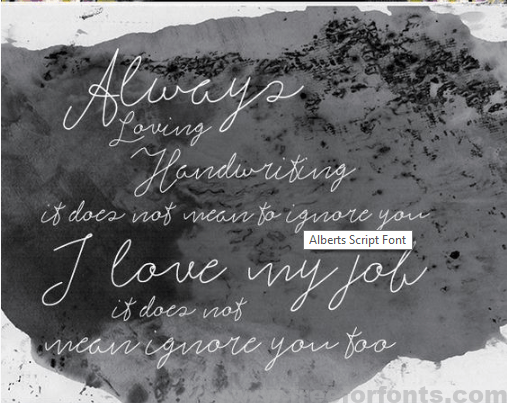 Always
Loving
Handwriting
it does not mean to ignore you
Alberts Script Font
I love my job
it does not
mean ignore you too
orfonts.com